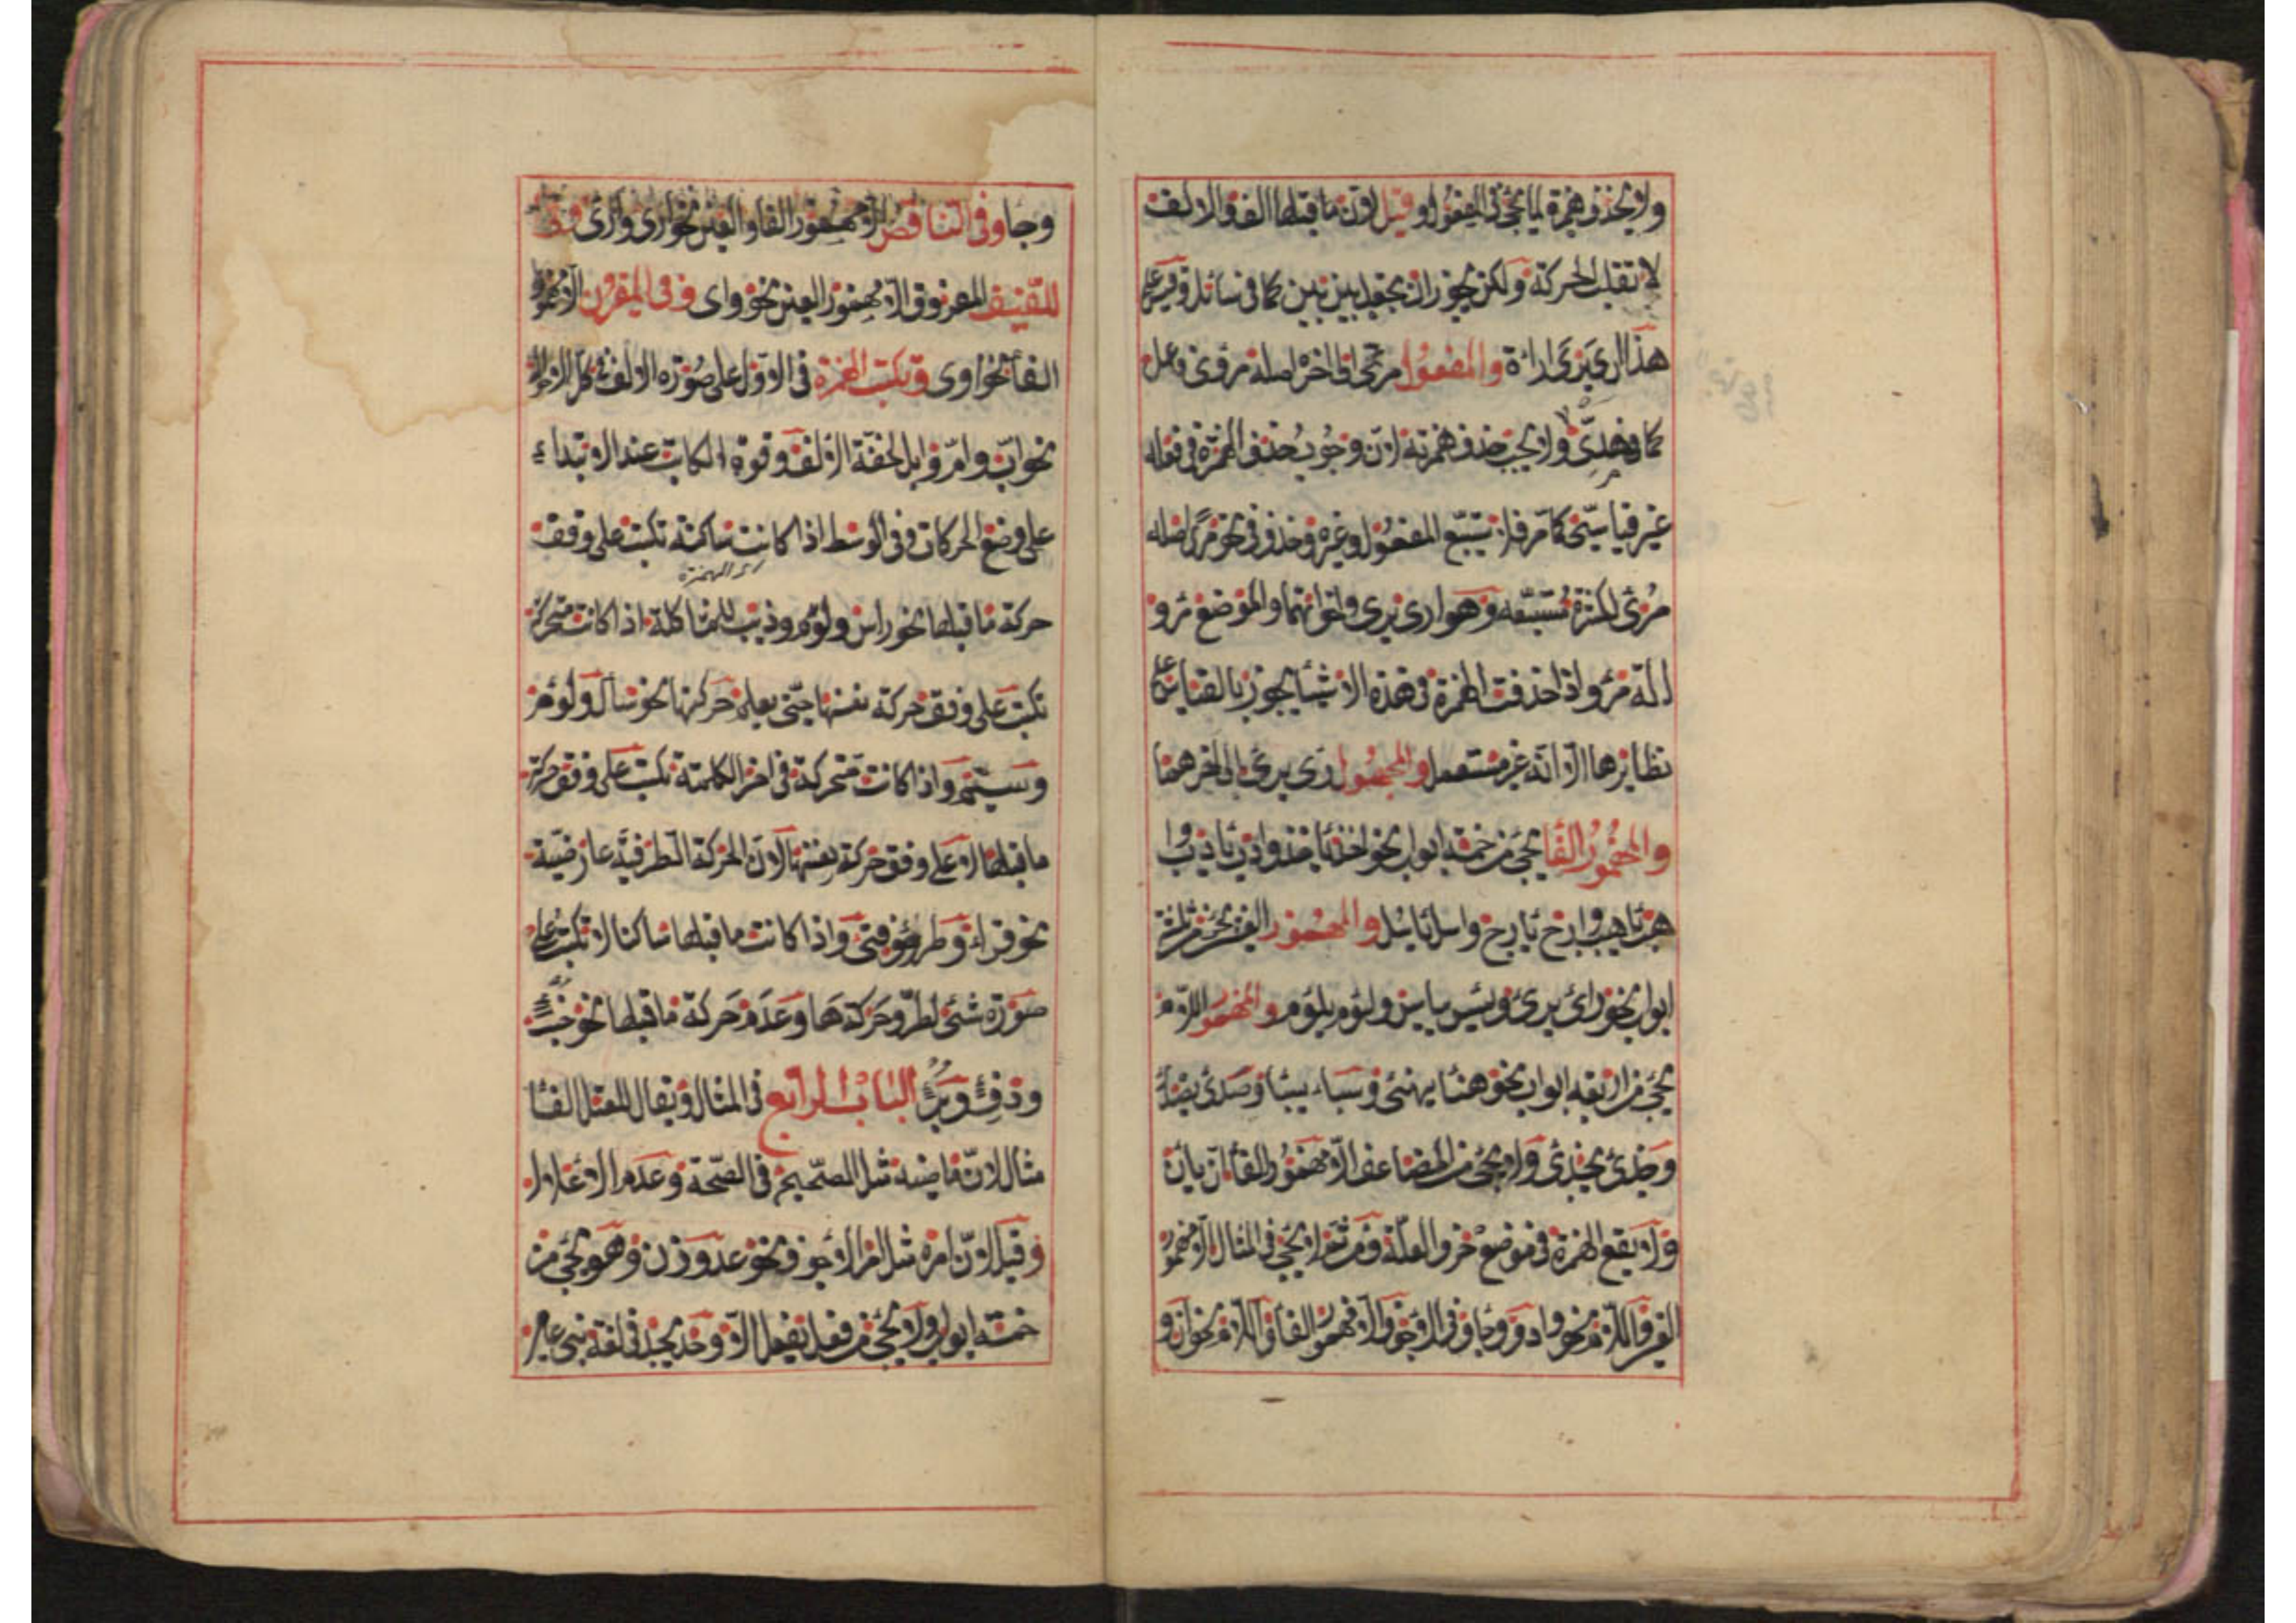 ولا يحذف همزة لما يجئ في المفعول وقيل لان ما قبلها الف والالف
لا تقبل الحركة ولكن يجوز ان يجعل بين بين كما في سائل وقس على
هذا ارى يرى اراءة والمفعول مرئى الخ اصله مرؤى فاعل
كما في مهدى ولا يجب حذف همزته لان وجوب حذف الهمزة في فعله
غير قياسى كما مر فلا يستتبع المفعول وغيره وحذف في نحو مرى اصله
مرئى لكثرة مستتبعه وهو ارى يرى واخواتهما والموضع مرو
الة مرو اذا حذفت الهمزة في هذه الاشيا يجوز بالقياس على
نظايرها الا انه غير مستعمل والمجهول رى يرى الى اخرهما
والمهموز الفا يجئ من خمسة ابواب نحو اخذ ياخذ وادب يادب و
اهب ياهب وارج يارج واسل ياسل والمهموز العين يجئ من ثلثة
ابواب نحو رأى يرى ويئس ييأس ولؤم يلؤم والمهموز اللام
يجئ من اربعة ابواب نحو هنأ يهنئ وسبأ يسبأ وصدئ يصدأ
وجزئ يجزئ ولا يجئ من المضاعف الا مهموز الفا ان يان
ولا يقع الهمزة في موضع حروف العلة ومن ثم لا يجئ في المثال الا مهموز
العين واللام نحو واد ووجا وفي الاجوف الا مهموز الفا واللام نحو ان و
وجا وفي الناقص الا مهموز الفا والعين نحو ارى ورأى وفي
اللفيف المفروق الا مهموز العين نحو واى وفي المقرون الا مهموز
الفا نحو اوى وتكتب الهمزة في الاول على صورة الالف في كل الاحوال
نحو اب وام وابل لخفة الالف وقوة الكاتب عند الابتداء
على وضع الحركات وفي الوسط اذا كانت ساكنة تكتب على وفق
اى الهمزة
حركة ما قبلها نحو راس ولؤم وذيب للمشاكلة اذا كانت متحركة
تكتب على وفق حركة نفسها حتى يعلم حركتها نحو سأل ولؤم
وسئم واذا كانت متحركة في اخر الكلمة تكتب على وفق حركة
ما قبلها لا على وفق حركة نفسها لان الحركة الطرفية عارضية
نحو قرأ وطرؤ وفتئ واذا كانت ما قبلها ساكنا لا تكتب على
صورة شئ لطرو حركتها وعدم حركة ما قبلها نحو خبء
ودفء وبرء الباب الرابع في المثال ويقال للمعتل الفا
مثال لان ماضيه مثل الصحيح في الصحة وعدم الاعلال
وقيل لان امره مثل امر الاجوف نحو عد وزن وهو يجئ من
خمسة ابواب ولا يجئ من فعل يفعل الا وجد يجد في لغة بنى عامر